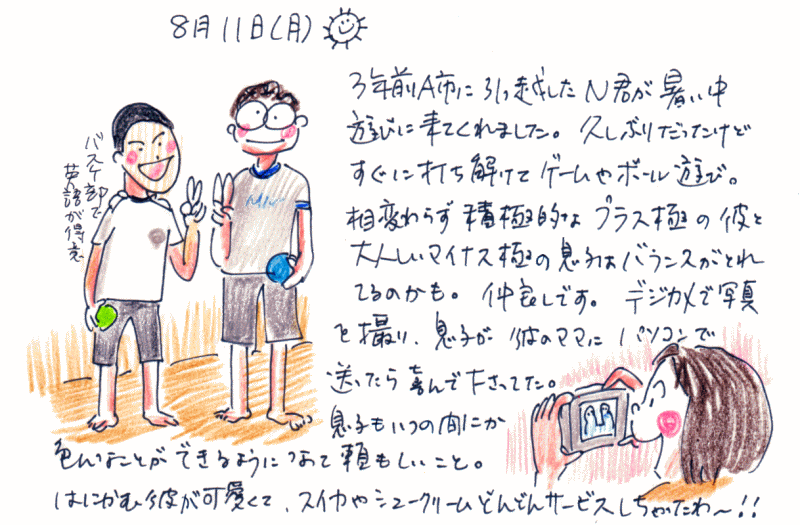 8月11日(月)
3年前A市に引っ越したN君が暑い中
遊びに来てくれました。久しぶりだったけど
すぐに打ち解けてゲームやボール遊び。
相変わらず積極的なプラス極の彼と
大人しいマイナス極の息子はバランスがとれ
てるのかも。仲良しです。デジカメで写真
を撮り、息子が彼のママにパソコンで
送ったら喜んで下さってた。
息子もいつの間にか
色んなことができるようになって頼もしいこと。
はにかむ彼が可愛くて、スイカやシュークリームどんどんサービスしちゃったわ〜!!
バスケ部で
英語が得意